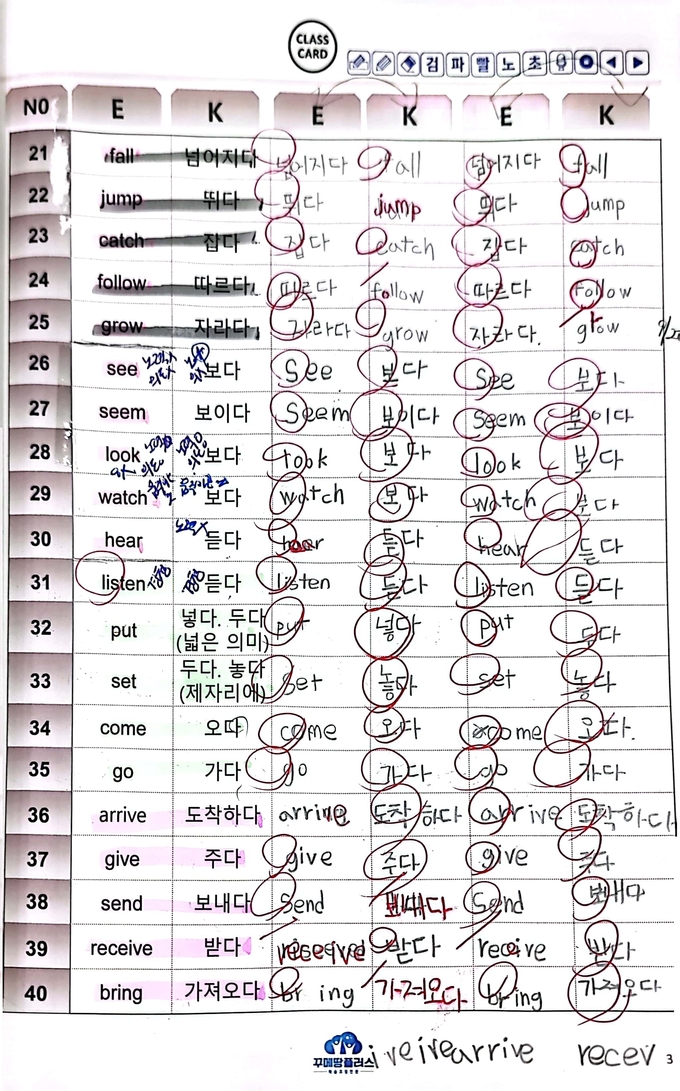 CLASS CARD
검 파 빨 노 초
NO E K E K E K
21 fall 넘어지다 넘어지다 fall 넘어지다 fall
22 jump 뛰다 뛰다 jump 뛰다 jump
23 catch 잡다 잡다 catch 잡다 catch
24 follow 따르다 따르다 follow 따르다 Follow
25 grow 자라다 자라다 grow 자라다. grow
26 see 보다 See 보다 See 보다
27 seem 보이다 Seem 보이다 Seem 보이다
28 look 보다 look 보다 look 보다
29 watch 보다 watch 보다 watch 보다
30 hear 듣다 hear 듣다 hear 듣다
31 listen 듣다 listen 듣다 listen 듣다
32 put 넣다. 두다 (넓은 의미) put 넣다 put
33 set 두다. 놓다 (제자리에) Set 놓다 set 놓다
34 come 오다 come 오다 come 오다.
35 go 가다 go 가다 go 가다
36 arrive 도착하다 arrive 도착하다 arrive 도착하다
37 give 주다 give 주다 give 주다
38 send 보내다 Send 보내다 Send 보내다
39 receive 받다 receive 받다 receive 받다
40 bring 가져오다 bring 가져오다 bring 가져오다
꾸메땅플러스 iveivearrive recev 3